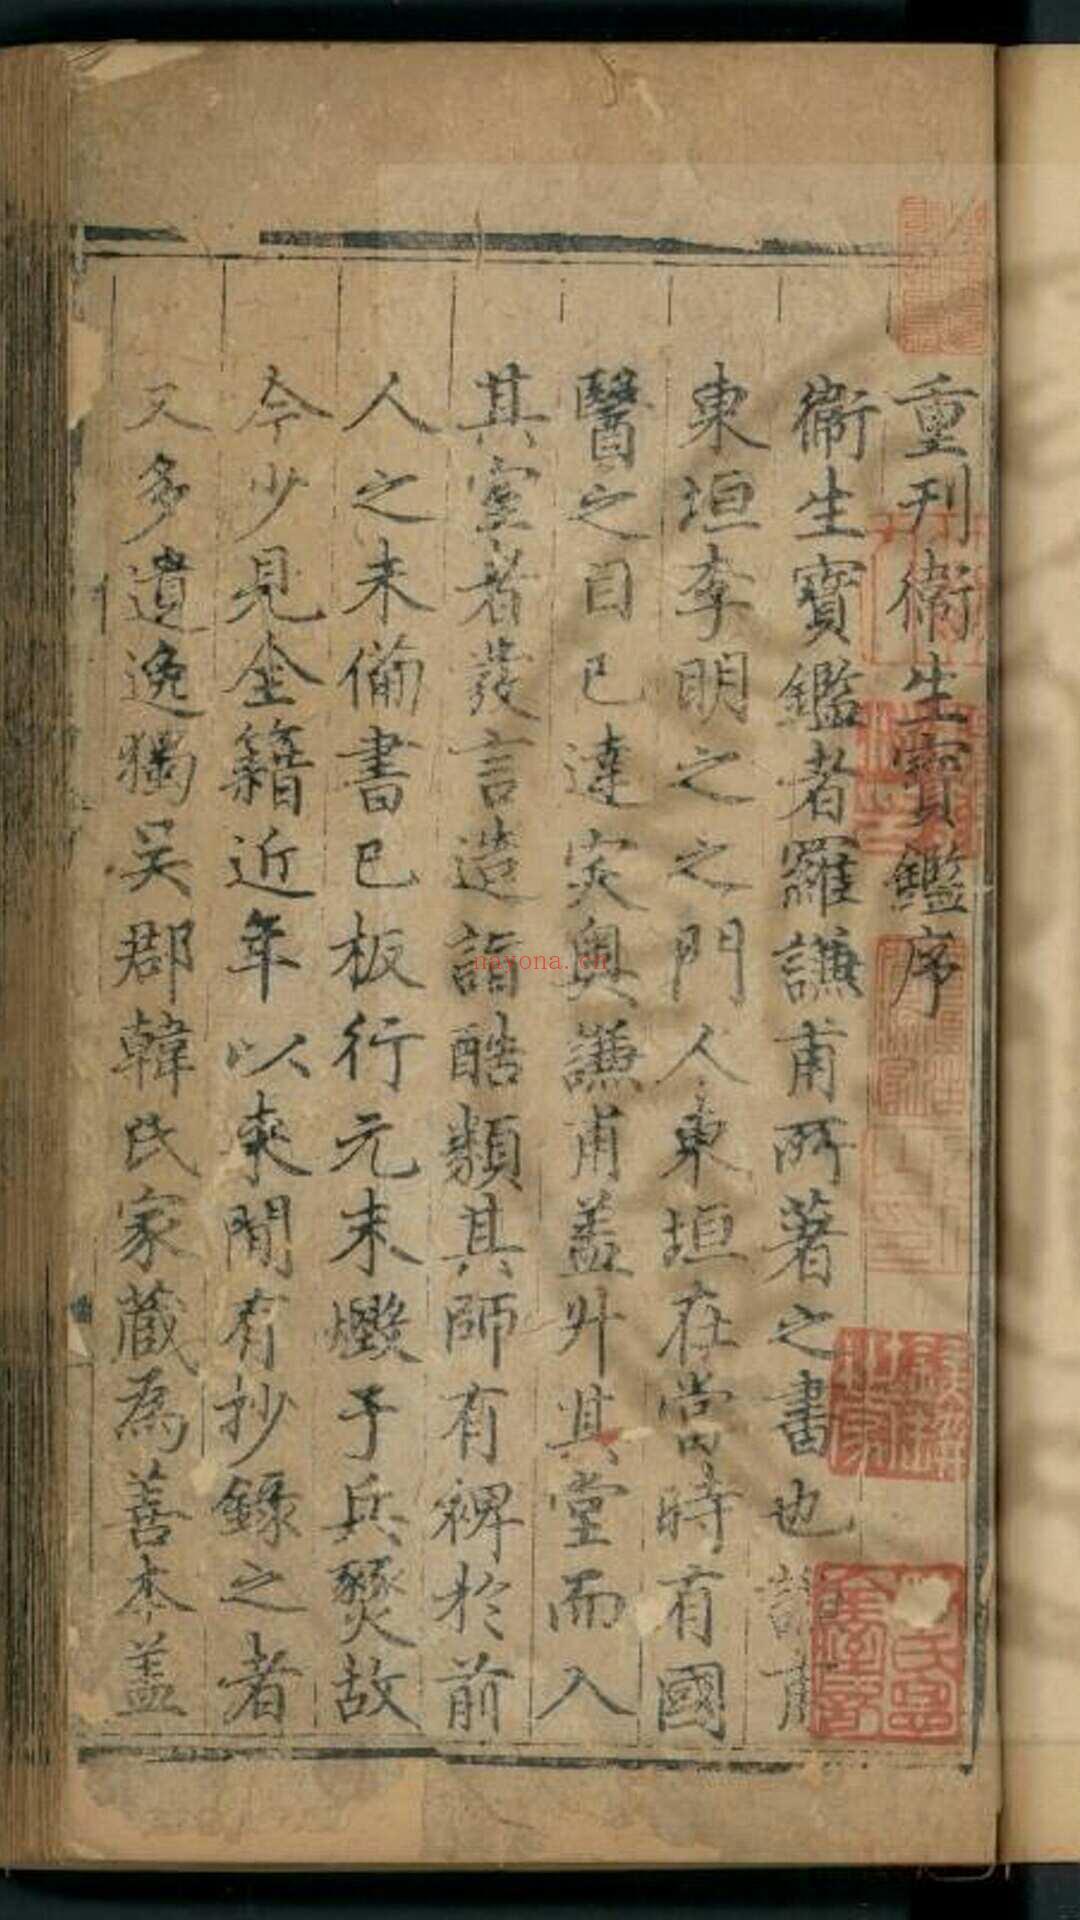 重刊衛生寳鑑序
衛生寳鑑者羅謙甫所著之書也謙甫
東垣李明之之門人東垣在當時有國
醫之目已達突奥謙甫盖升其堂而入
其室者發言造詣酷類其師有裨於前
人之未備書已板行元末燬于兵燹故
今少見全籍近年以來閒有抄錄之者
又多遺逸獨吴郡韓氏家藏爲善本盖
nayona.cn